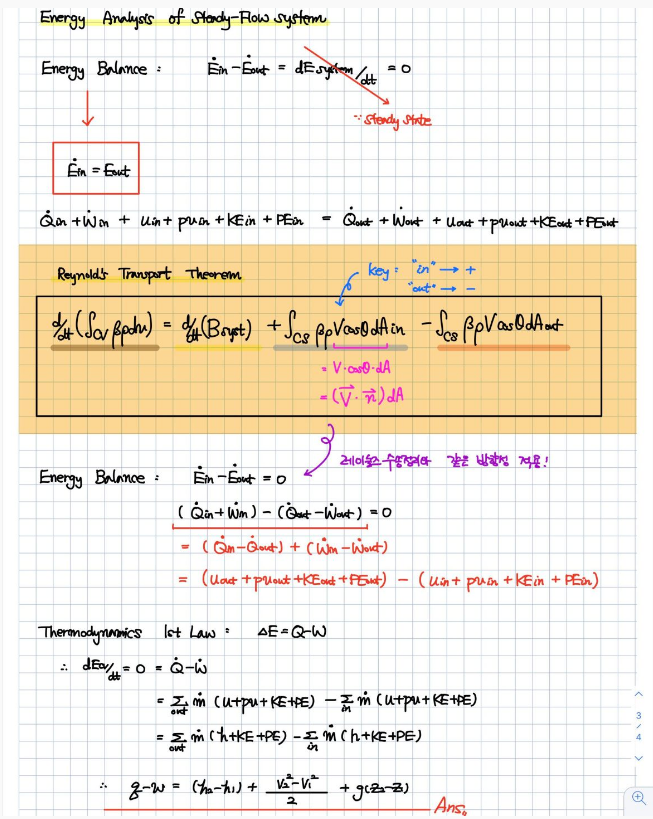 Energy Analysis of Steady-Flow system
Energy Balance : Ėin - Ėout = dEsystem/dt = 0
∵ Steady State
Ėin = Eout
Q̇in + Ẇin + uin + pυin + KEin + PEin = Q̇out + Ẇout + uout + pυout + KEout + PEout
Reynold's Transport Theorem
key : "in" → +
"out" → -
d/dt (∫cv βρdυ) = d/dt (Bsyst) + ∫cs βρVcosθdAin - ∫cs βρVcosθdAout
= V·cosθ·dA
= (V⃗·n⃗)dA
레이놀즈 수송정리와 같은 방향성 적용!
Energy Balance : Ėin - Ėout = 0
(Q̇in + Ẇin) - (Q̇out - Ẇout) = 0
= (Q̇in - Q̇out) + (Ẇin - Ẇout)
= (uout + pυout + KEout + PEout) - (uin + pυin + KEin + PEin)
Thermodynamics 1st Law : ΔE = Q-W
∴ dEcv/dt = 0 = Q̇-Ẇ
= Σout ṁ (u+pυ+KE+PE) - Σin ṁ (u+pυ+KE+PE)
= Σout ṁ (h+KE+PE) - Σin ṁ (h+KE+PE)
∴ q-w = (h₂-h₁) + (V₂²-V₁²)/2 + g(z₂-z₁)
Ans.
3
/
4